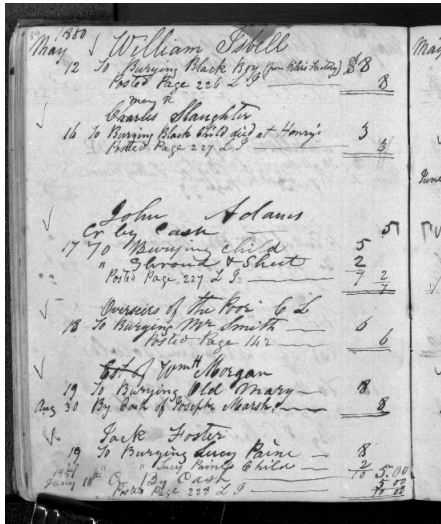 84 1850
May William Isbell
12 To Burying Black Boy (from Factory) $8
Posted Page 226 L I 8
Charles Slaughter
16 To Burying Black Child died at Henry's 3
Posted Page 227 L I 3
John Adams
Cr by Cash 5
17 To Burying Child 5
" Shroud & Sheet 2
Posted Page, 227 L I 7 2
7
Overseirs of the Poor C L
18 To Burying Mr Smith 6
Posted Page 142 6
Est of Wm H Morgan
19 To Burying Old Mary 8
Aug 30 By Cash of Joseph Marsh 8
Jack Foster
19 To Burying Lucy Paine 8
" Lucy Paines Child 2
Jany 10th Cr By Cash 10 5.00
5 00
Posted Page 228 L I 10 00
May
June